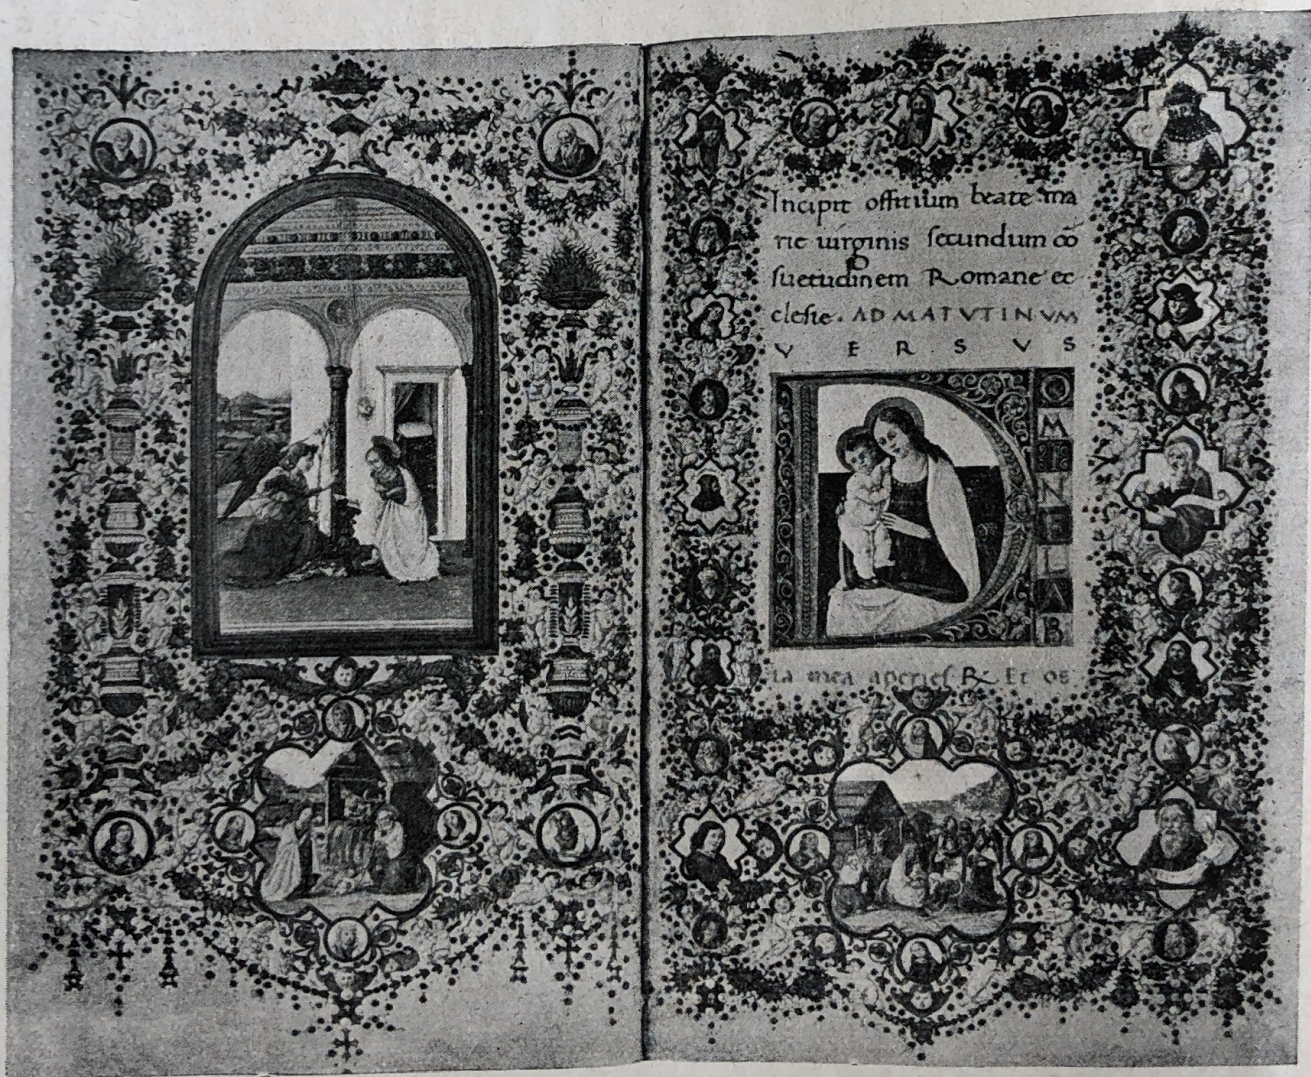 Incipit offitium beate ma
rie uirginis secundum cō
suetudinem Romane ec
clesie. AD MATVTINVM
VERSVS
D
O
M
I
NE
LA
B
ia mea aperies R. Et os